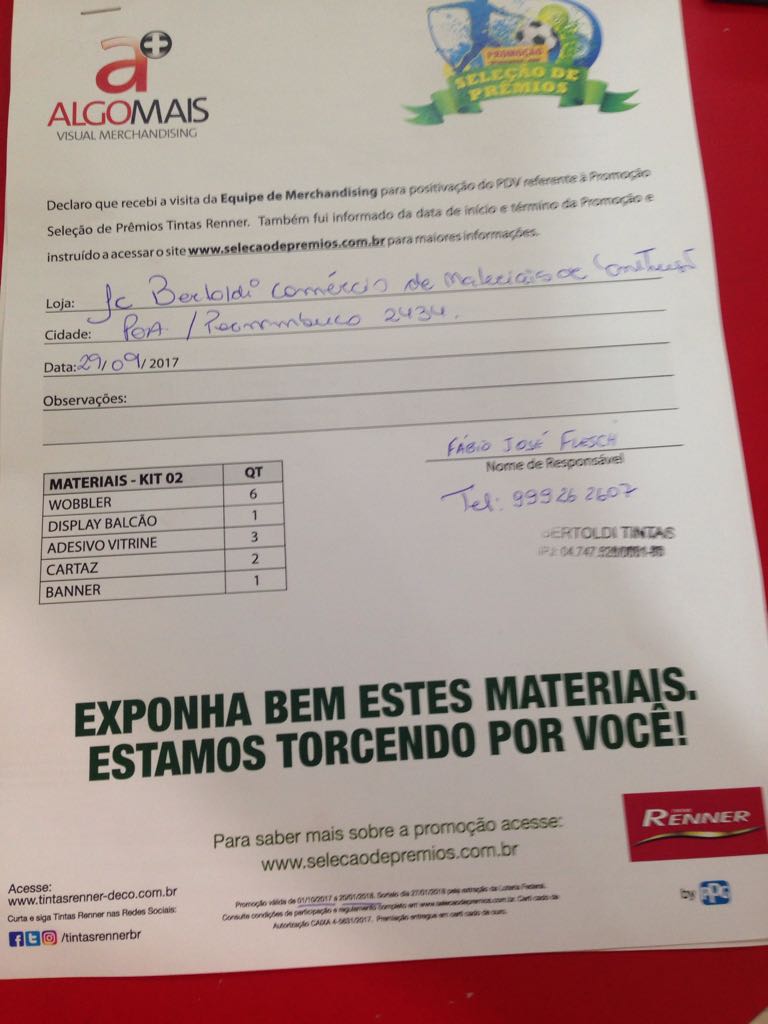 a+
ALGOMAIS
VISUAL MERCHANDISING
PROMOÇÃO
SELEÇÃO DE
PRÊMIOS
Declaro que recebi a visita da Equipe de Merchandising para positivação do PDV referente à Promoção
Seleção de Prêmios Tintas Renner. Também fui informado da data de início e término da Promoção e
instruído a acessar o site www.selecaodepremios.com.br para maiores informações.
Loja: Jc Bertoldi comércio de Materiais de
Cidade: POA / Pernambuco 2434.
Data: 29/09/2017
Observações:
FÁBIO JOSÉ FLESCH
Nome de Responsável
Tel: 99926 2607
BERTOLDI TINTAS
MATERIAIS - KIT 02 QT
WOBBLER 6
DISPLAY BALCÃO 1
ADESIVO VITRINE 3
CARTAZ 2
BANNER 1
EXPONHA BEM ESTES MATERIAIS.
ESTAMOS TORCENDO POR VOCÊ!
Para saber mais sobre a promoção acesse:
www.selecaodepremios.com.br
RENNER
by PPG
Acesse:
www.tintasrenner-deco.com.br
Curta e siga Tintas Renner nas Redes Sociais:
/tintasrennerbr
Promoção válida de 01/10/2017 a 20/01/2018. Sorteio dia 27/01/2018 pela extração da Loteria Federal.
Consulte condições de participação e regulamento completo em www.selecaodepremios.com.br.
Autorização CAIXA 4-0631/2017. Premiação entregue em certificado de ouro.